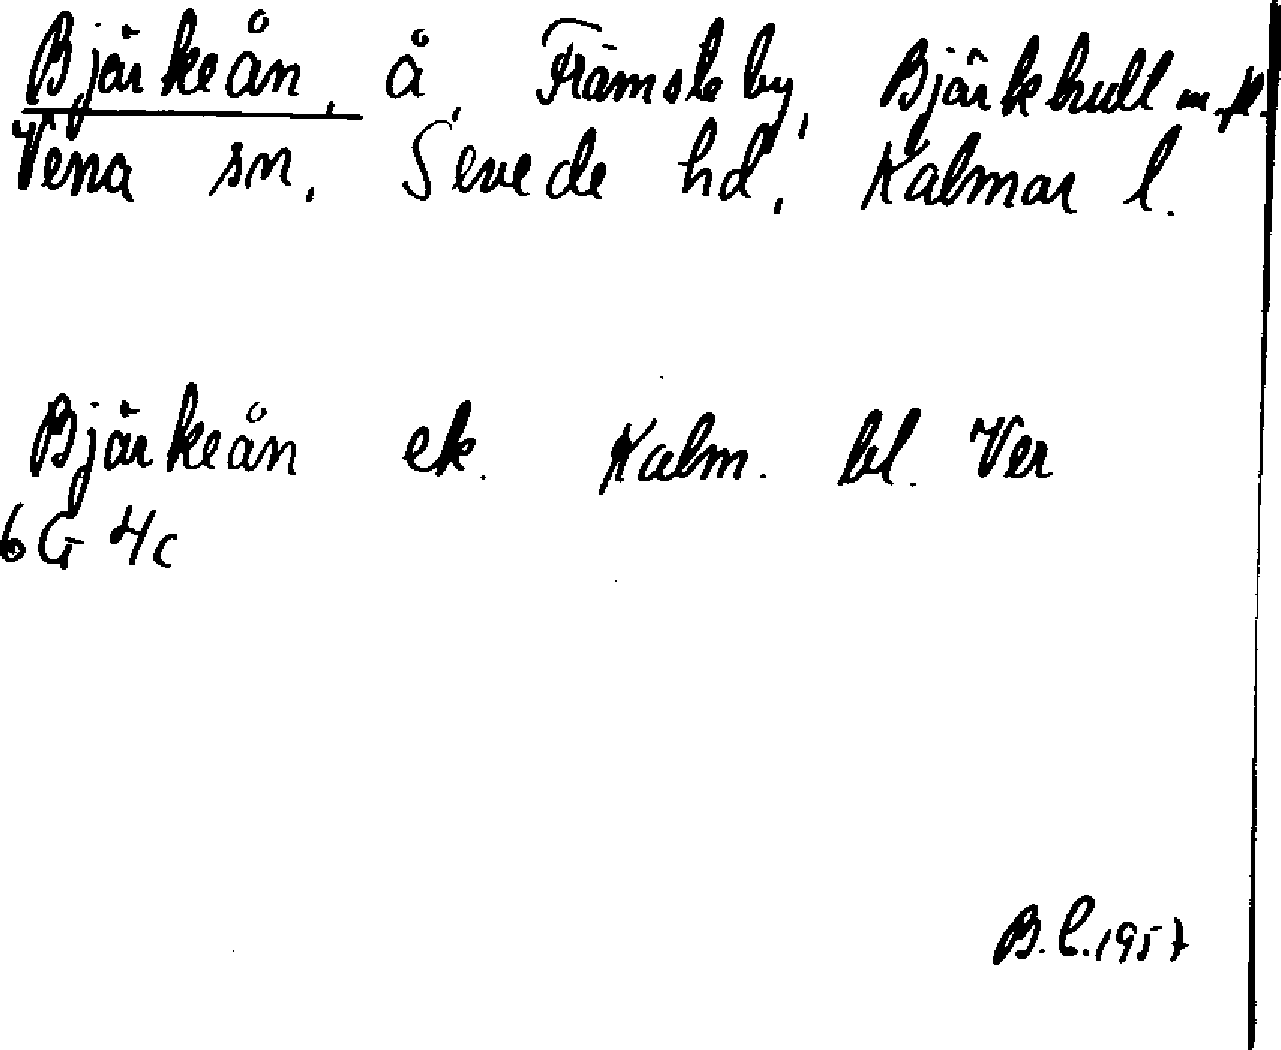 Bjärkeån, å, Främsteby, Bjärkhult m.fl.
Vena sn, Sevede hd, Kalmar l.
Bjärkeån ek. Kalm. bl. Ver
6G 4c
B.L.1957